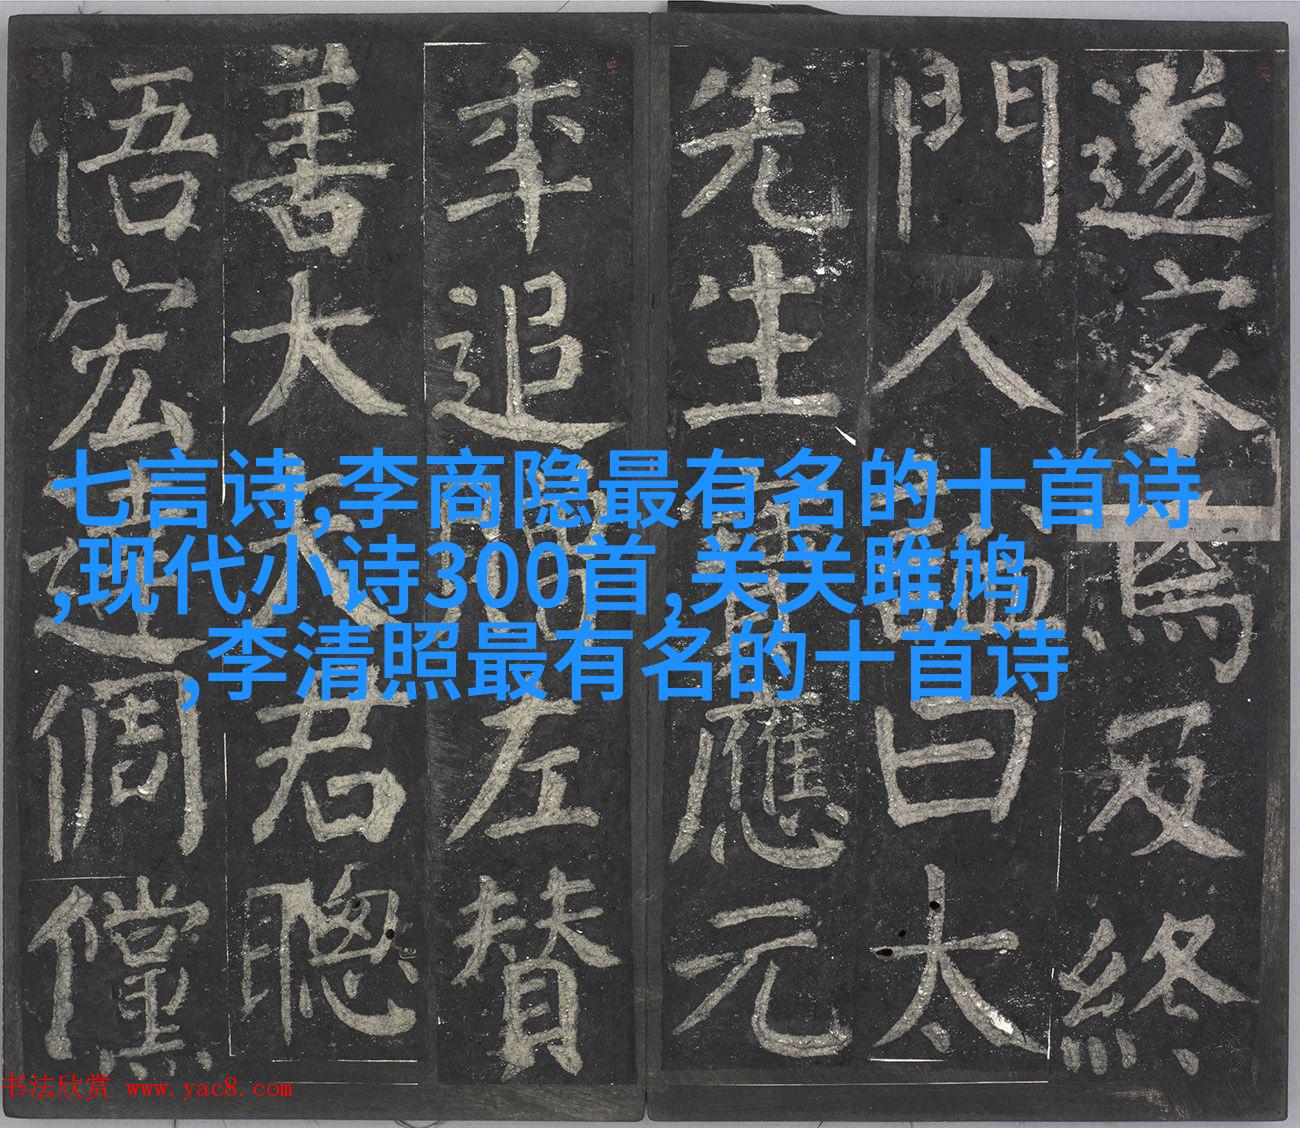 遂家焉及終
門人謚曰太
先生靈應元
年追贈左贊
善大夫君聰
悟宏達倜儻
七言诗,李商隐最有名的十首诗
,现代小诗300首,关关雎鸠
,李清照最有名的十首诗
书法欣赏 www.yac8.com